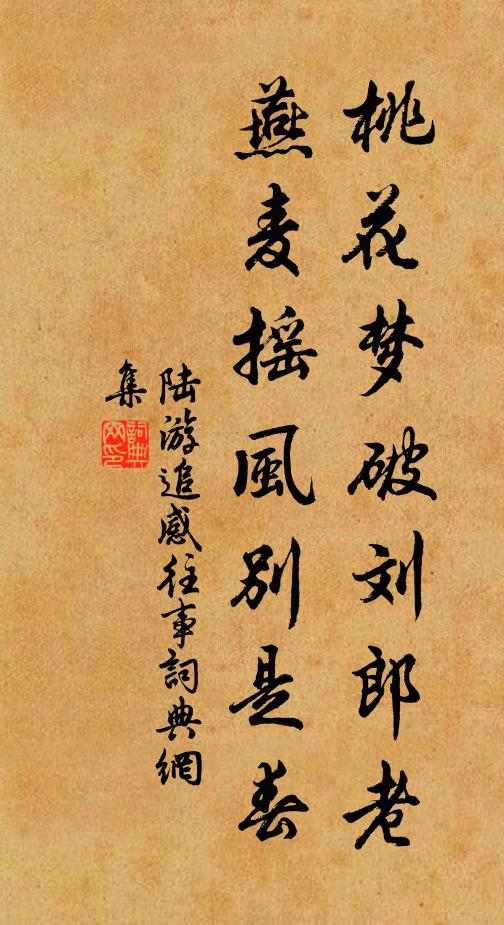 桃花梦破刘郎老
燕麦摇風别是春
陆游追感往事詞典網
集
詞典網印